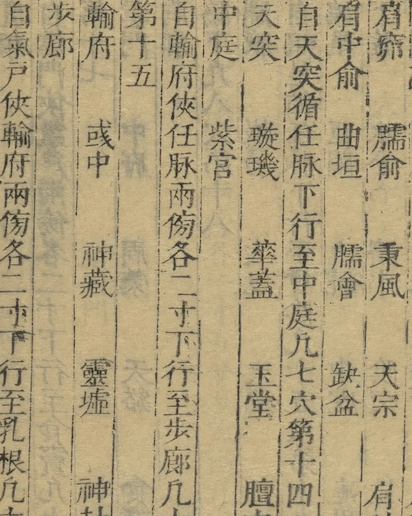 肩髎 臑俞 秉風 天宗 肩
肩中俞 曲垣 臑會 缺盆
自天突循任脉下行至中庭凡七穴第十四
天突 璇璣 華蓋 玉堂 膻
中庭 紫宮
自輸府俠任脉兩傍各二寸下行至步廊凡
第十五
輸府 彧中 神藏 靈墟 神
步廊
自氣戶俠輸府兩傍各二寸下行至乳根凡